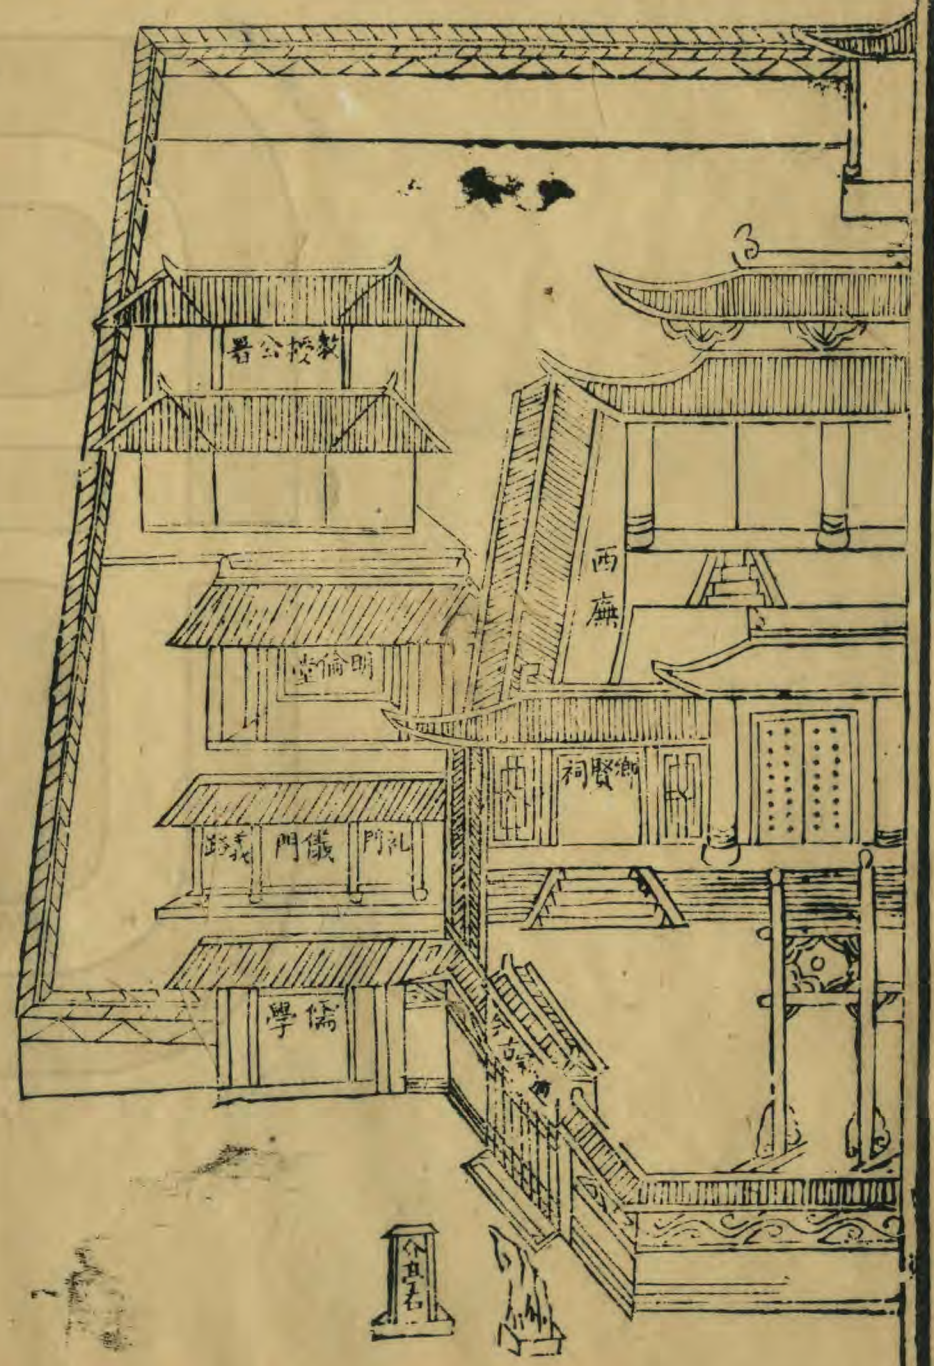 教授公署
西廡
明倫堂
鄉賢祠
礼門
儀門
義路
儒學